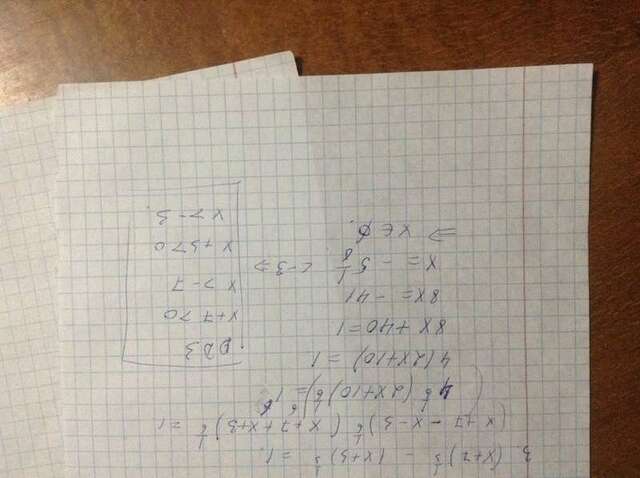 3. (x+7)^{1/3} - (x+3)^{1/3} = 1.
(x+7-x-3)^{1/6} (x+7+x+3)^{1/6} = 1
4^{1/6} (2x+10)^{1/6} = 1
4(2x+10) = 1
8x+40=1
8x = -41
x = -5 1/8 < -3 ⇒
⇒ x ∈ ∅.
ОДЗ
x+7>0
x>-7
x+3>0
x>-3.